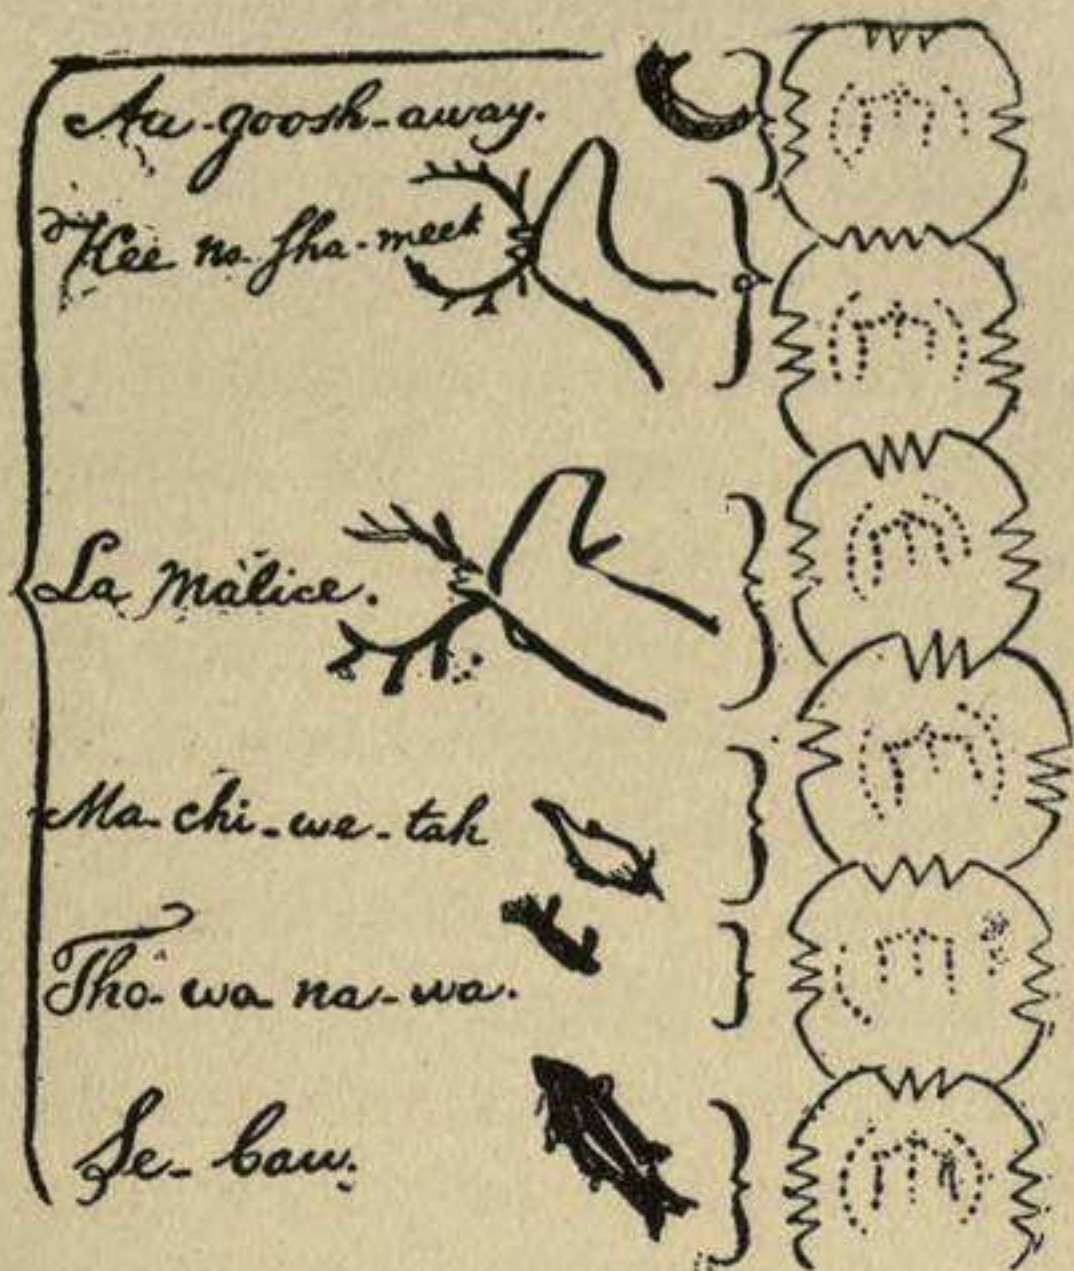 Au-goosh-away.
Kee no-sha-meek
La Málice.
Ma-chi-we-tah
Tho-wa na-wa.
Se-bau.